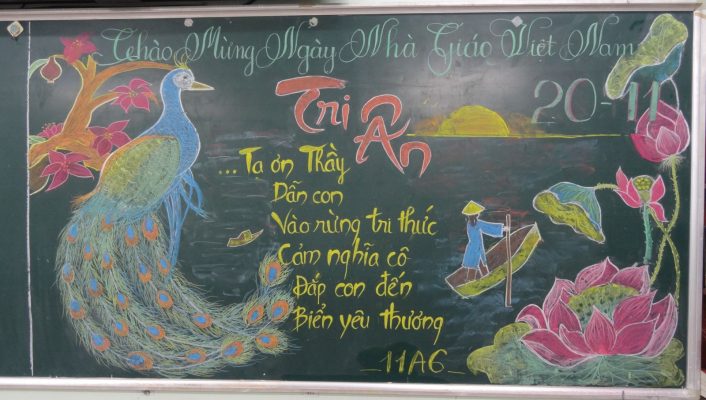 Chào Mừng Ngày Nhà Giáo Việt Nam
20-11
Tri Ân
...Tạ ơn Thầy
Dẫn con
Vào rừng tri thức
Cảm nghĩa cô
Đắp con đến
Biển yêu thương
_11A6_